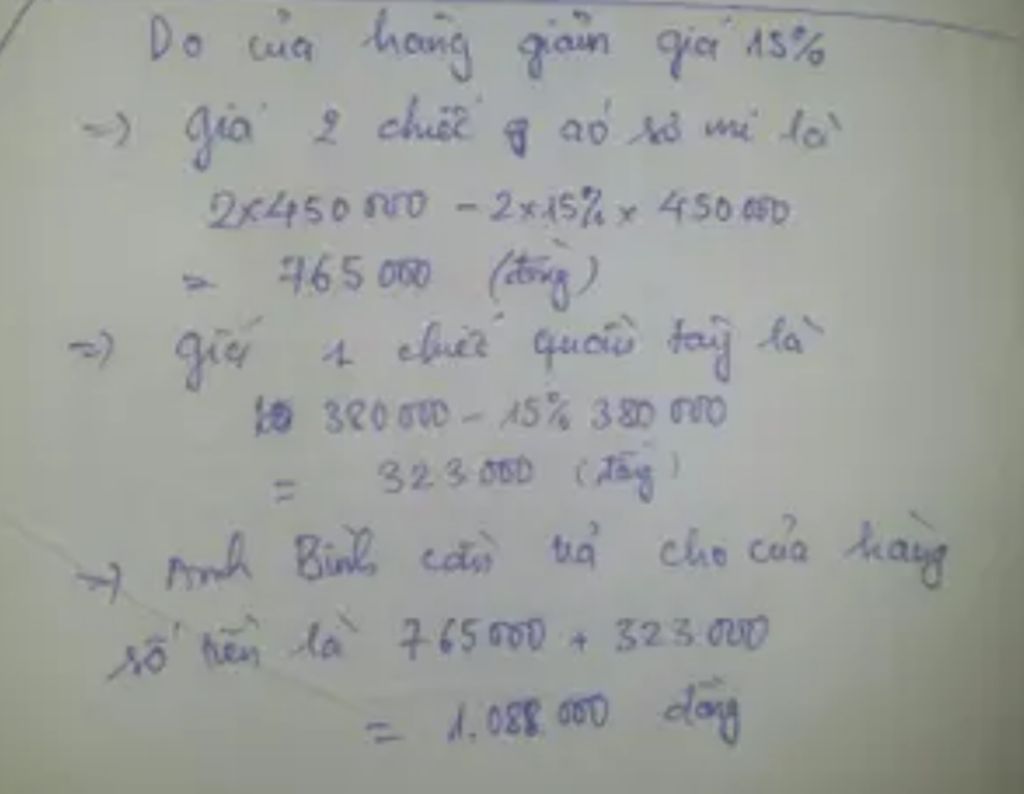 Do cửa hàng giảm giá 15%
=) giá 2 chiếc áo sơ mi là
2×450 000 - 2×15% × 450 000
= 765 000 (đồng)
=) giá 1 chiếc quần tây là
380 000 - 15% 380 000
= 323 000 (đồng)
=) Anh Bình cần trả cho cửa hàng
số tiền là 765 000 + 323.000
= 1.088 000 đồng